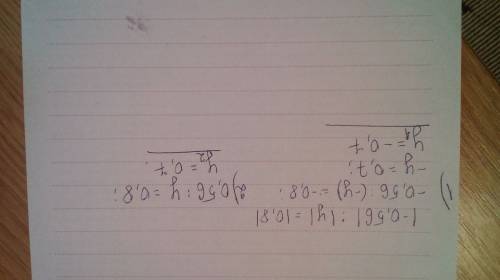 |-0,56| : |y| = |0,8|
1) -0,56 : (-y) = -0,8 ;
-y = 0,7 ;
y₁ = -0,7
2) 0,56 : y = 0,8 ;
y₂ = 0,7 .